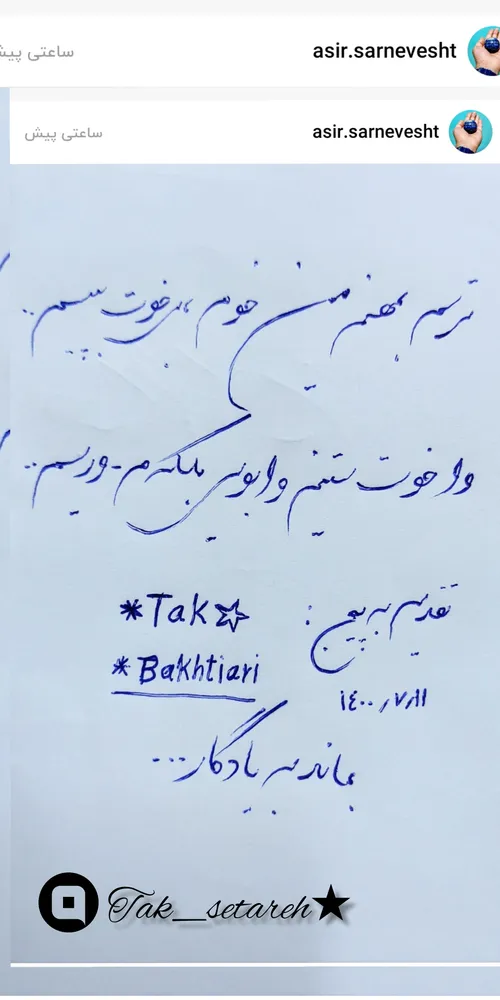 asir.sarnevesht ساعتی پیش
asir.sarnevesht ساعتی پیش
ترسم بهنم من خوم بی خوت بیسم..
وا خوت نتینم وابویی بلکه م ورسم..
تقدیم به پیج :
*Tak☆
*Bakhtiari
۱٤۰۰٫۷٫۱۱
بماند به یادگار...
Tak_setareh★